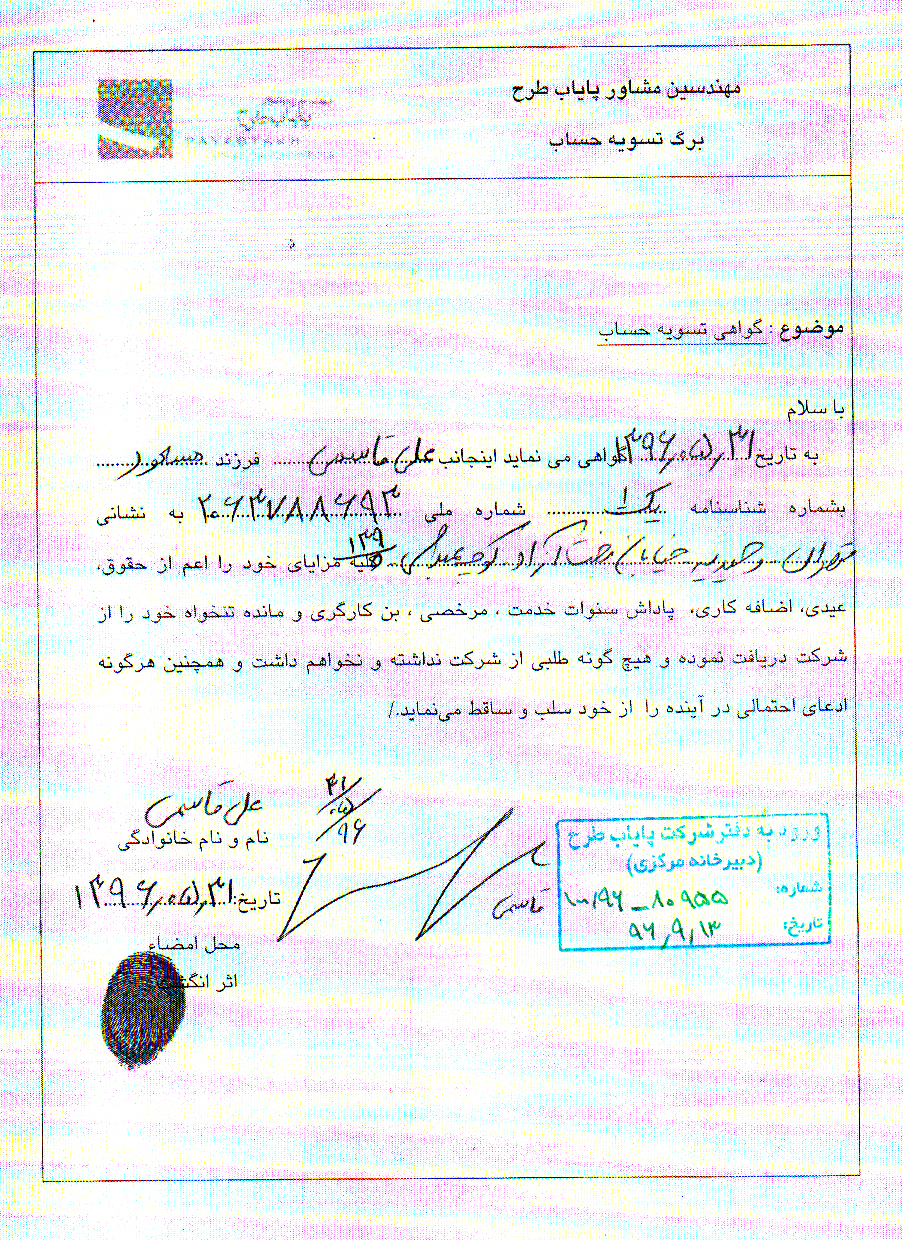 مهندسین مشاور پایاب طرح
برگ تسویه حساب
پایاب طرح
PAYABTARH
موضوع : گواهی تسویه حساب
با سلام
به تاریخ ۱۳۹۶,۰۵,۳۱ گواهی می نماید اینجانب علی قاسمی فرزند مسعود
بشماره شناسنامه یک ۱ شماره ملی ۲۰۶۳۷۸۸۶۹۳ به نشانی
تهران وحیدیه خیابان بخت آزاد کوچه ۱۳۹ کلیه مزایای خود را اعم از حقوق،
عیدی، اضافه کاری، پاداش سنوات خدمت ، مرخصی ، بن کارگری و مانده تنخواه خود را از
شرکت دریافت نموده و هیچ گونه طلبی از شرکت نداشته و نخواهم داشت و همچنین هرگونه
ادعای احتمالی در آینده را از خود سلب و ساقط می‌نماید./
علی قاسمی
نام و نام خانوادگی
۳۱/۰۵/۹۶
تاریخ: ۱۳۹۶,۰۵,۳۱
قاسمی
محل امضاء
اثر انگشت
ورود به دفتر شرکت پایاب طرح
(دبیرخانه مرکزی)
شماره: ۱۰۰/۹۶ – ۸۰۹۵۵
تاریخ: ۹۶,۹,۱۳